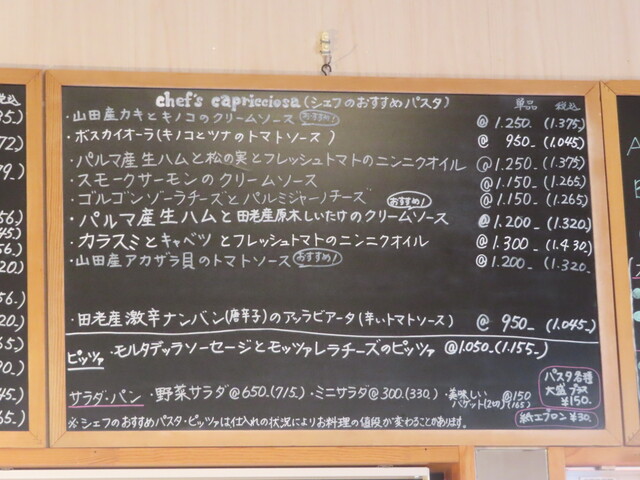 chef's capricciosa (シェフのおすすめパスタ) 単品 税込
・山田産カキとキノコのクリームソース おすすめ! @ 1.250. (1.375.)
・ボスカイオーラ(キノコとツナのトマトソース) @ 950_ (1.045.)
・パルマ産生ハムと松の実とフレッシュトマトのニンニクオイル @ 1.250_ (1.375)
・スモークサーモンのクリームソース @ 1.150_ (1.265)
・ゴルゴンゾーラチーズとパルミジャーノチーズ @ 1.150_ (1.265)
・パルマ産生ハムと田老産原木しいたけのクリームソース おすすめ! @ 1.200_ (1.320)
・カラスミとキャベツとフレッシュトマトのニンニクオイル @ 1.300_ (1.430)
・山田産アカザラ貝のトマトソース おすすめ! @ 1.200_ (1.320_
・田老産激辛ナンバン(唐辛子)のアッラビアータ(辛いトマトソース) @ 950_ (1.045_)
ピッツァ ・モルタデッラソーセージとモッツァレラチーズのピッツァ @1.050_(1.155_)
サラダ・パン ・野菜サラダ@650.(715.) ・ミニサラダ@300.(330.) ・美味しいバゲット(2切) @150(165)
※シェフのおすすめパスタ・ピッツァは仕入れの状況によりお料理の値段が変わることがあります。
パスタ各種
大盛プラス
¥150.
紙エプロン ¥30.
税込